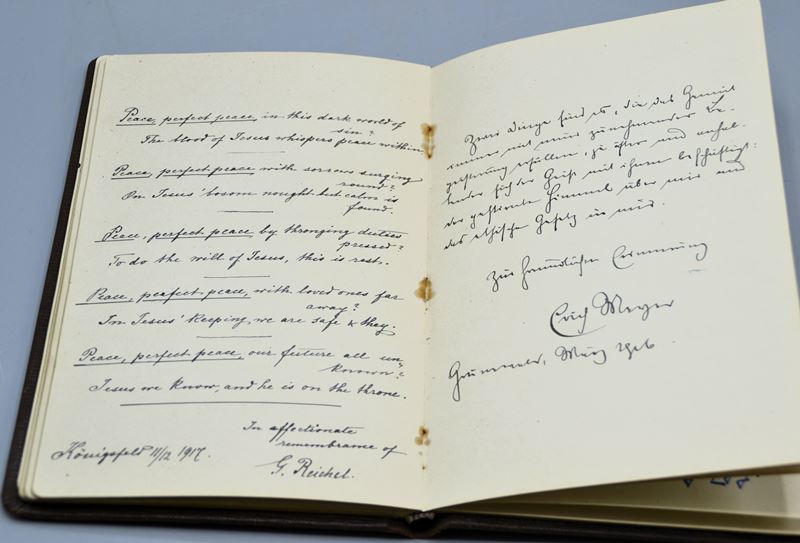 Peace, perfect peace, in this dark world of
sin?
The blood of Jesus whispers peace within.
Peace, perfect peace with sorrows surging
round?
On Jesus' bosom nought but calm is
found.
Peace, perfect peace, by thronging duties
pressed?
To do the will of Jesus, this is rest.
Peace, perfect peace, with loved ones far
away?
In Jesus' keeping, we are safe & they.
Peace, perfect peace, our future all un-
known?
Jesus we know, and he is on the throne.
In affectionate
remembrance of
G. Reichel.
Königsfeld 11/12 1917.
Zwei Dinge sind es, die das Gemüt
immer mit neuer zunehmender Be-
geisterung erfüllen, je öfter und anhal-
tender sich der Geist mit ihnen beschäftigt:
der gestirnte Himmel über mir und
das ethische Gesetz in mir.
Zur freundlichen Erinnerung
Erich Meyer
Grunewald, März 1916.